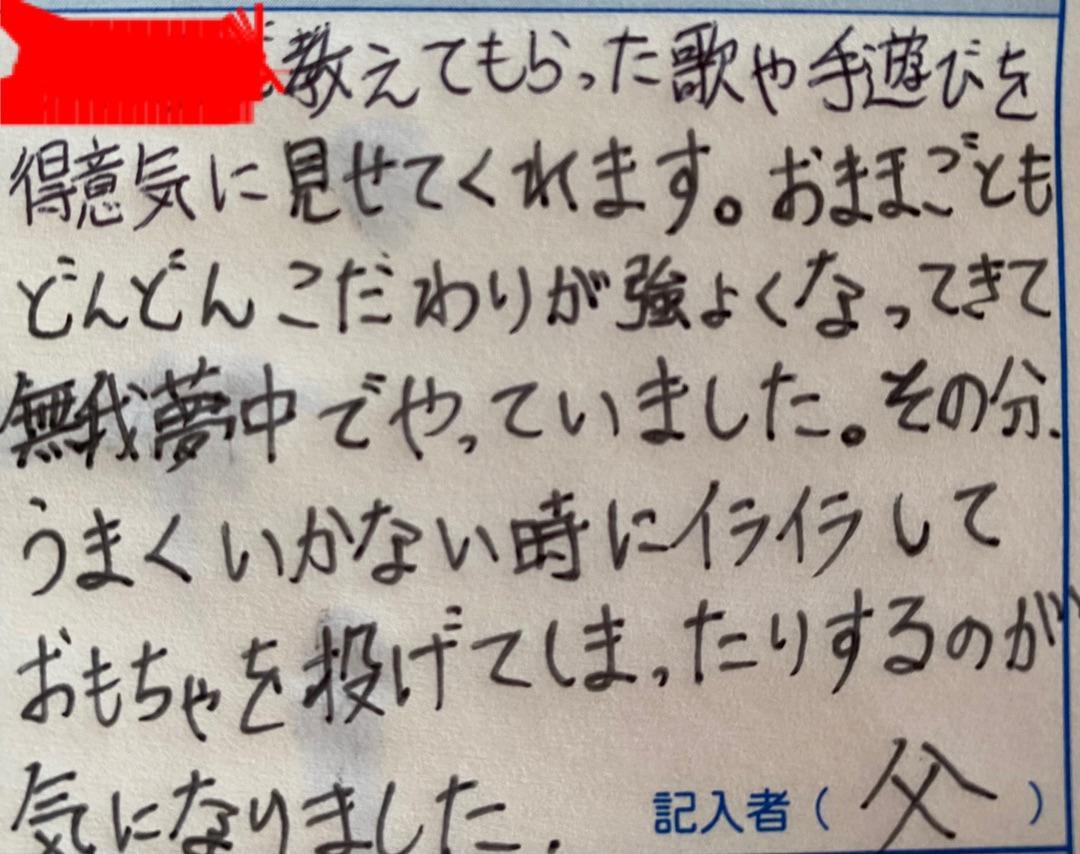 教えてもらった歌や手遊びを
得意気に見せてくれます。おままごとも
どんどんこだわりが強よくなってきて
無我夢中でやっていました。その分、
うまくいかない時にイライラして
おもちゃを投げてしまったりするのが
気になりました。
記入者(父)